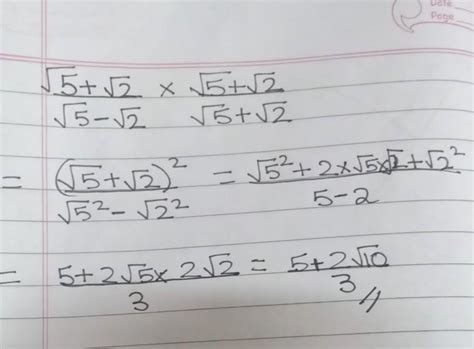 Date
Page
√5+√2 / √5-√2 × √5+√2 / √5+√2
= (√5+√2)² / √5²-√2² = √5²+2×√5×√2+√2² / 5-2
= 5+2√5×2√2 / 3 = 5+2√10 / 3 //